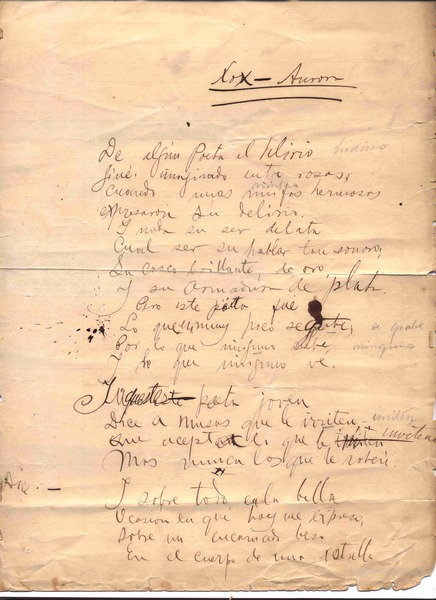 Xox — Aurora
De algún Poeta el Delirio
fué imaginado entre rosas,
cuando unas musas hermosas
expresaron su delirio.
Y nada su ser delata
Cual ser su hablar tan sonoro,
Su casco brillante, de oro,
Y su armadura de plata
Pero este poeta fue
Lo que muy poco se
Por lo que ninguno sabe, ninguno
Y lo que ninguno ve.
poeta joven
Dice a musas que te inviten,
que aceptar lo que te inviten
Mas nunca los que te roben
Y sobre todo en la bella
Ocasion en qué hoy me expreso,
Sobre un encarnado beso
En el cuerpo de una estrella